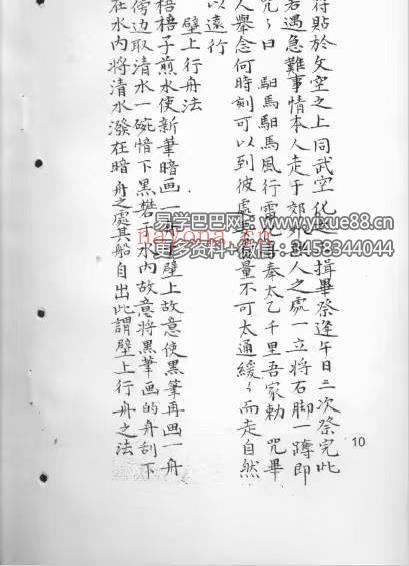 符貼於文空之上同武空化
揖畢祭逢午日三次祭完此
若遇急難事情本人走于郊外無人之處一立將石脚一蹲即
咒曰 馹馬馹馬風行雷
奉太乙千里吾家勅 咒畢
人舉念何時刻可以到彼處
量不可太通緩々而走自然
以遠行
壁上行舟法
梧桐子煎水使新筆暗画一舟
壁上故意使黒筆再画一舟
傍边取清水一碗惜下黒礬于水内故意將黒筆画的舟刮下
在水内將清水潑在暗舟之處其船自出此謂壁上行舟之法
10
易学巴巴网：www.yixue88.cn
更多资料+微信：3458344044
nayona.cn